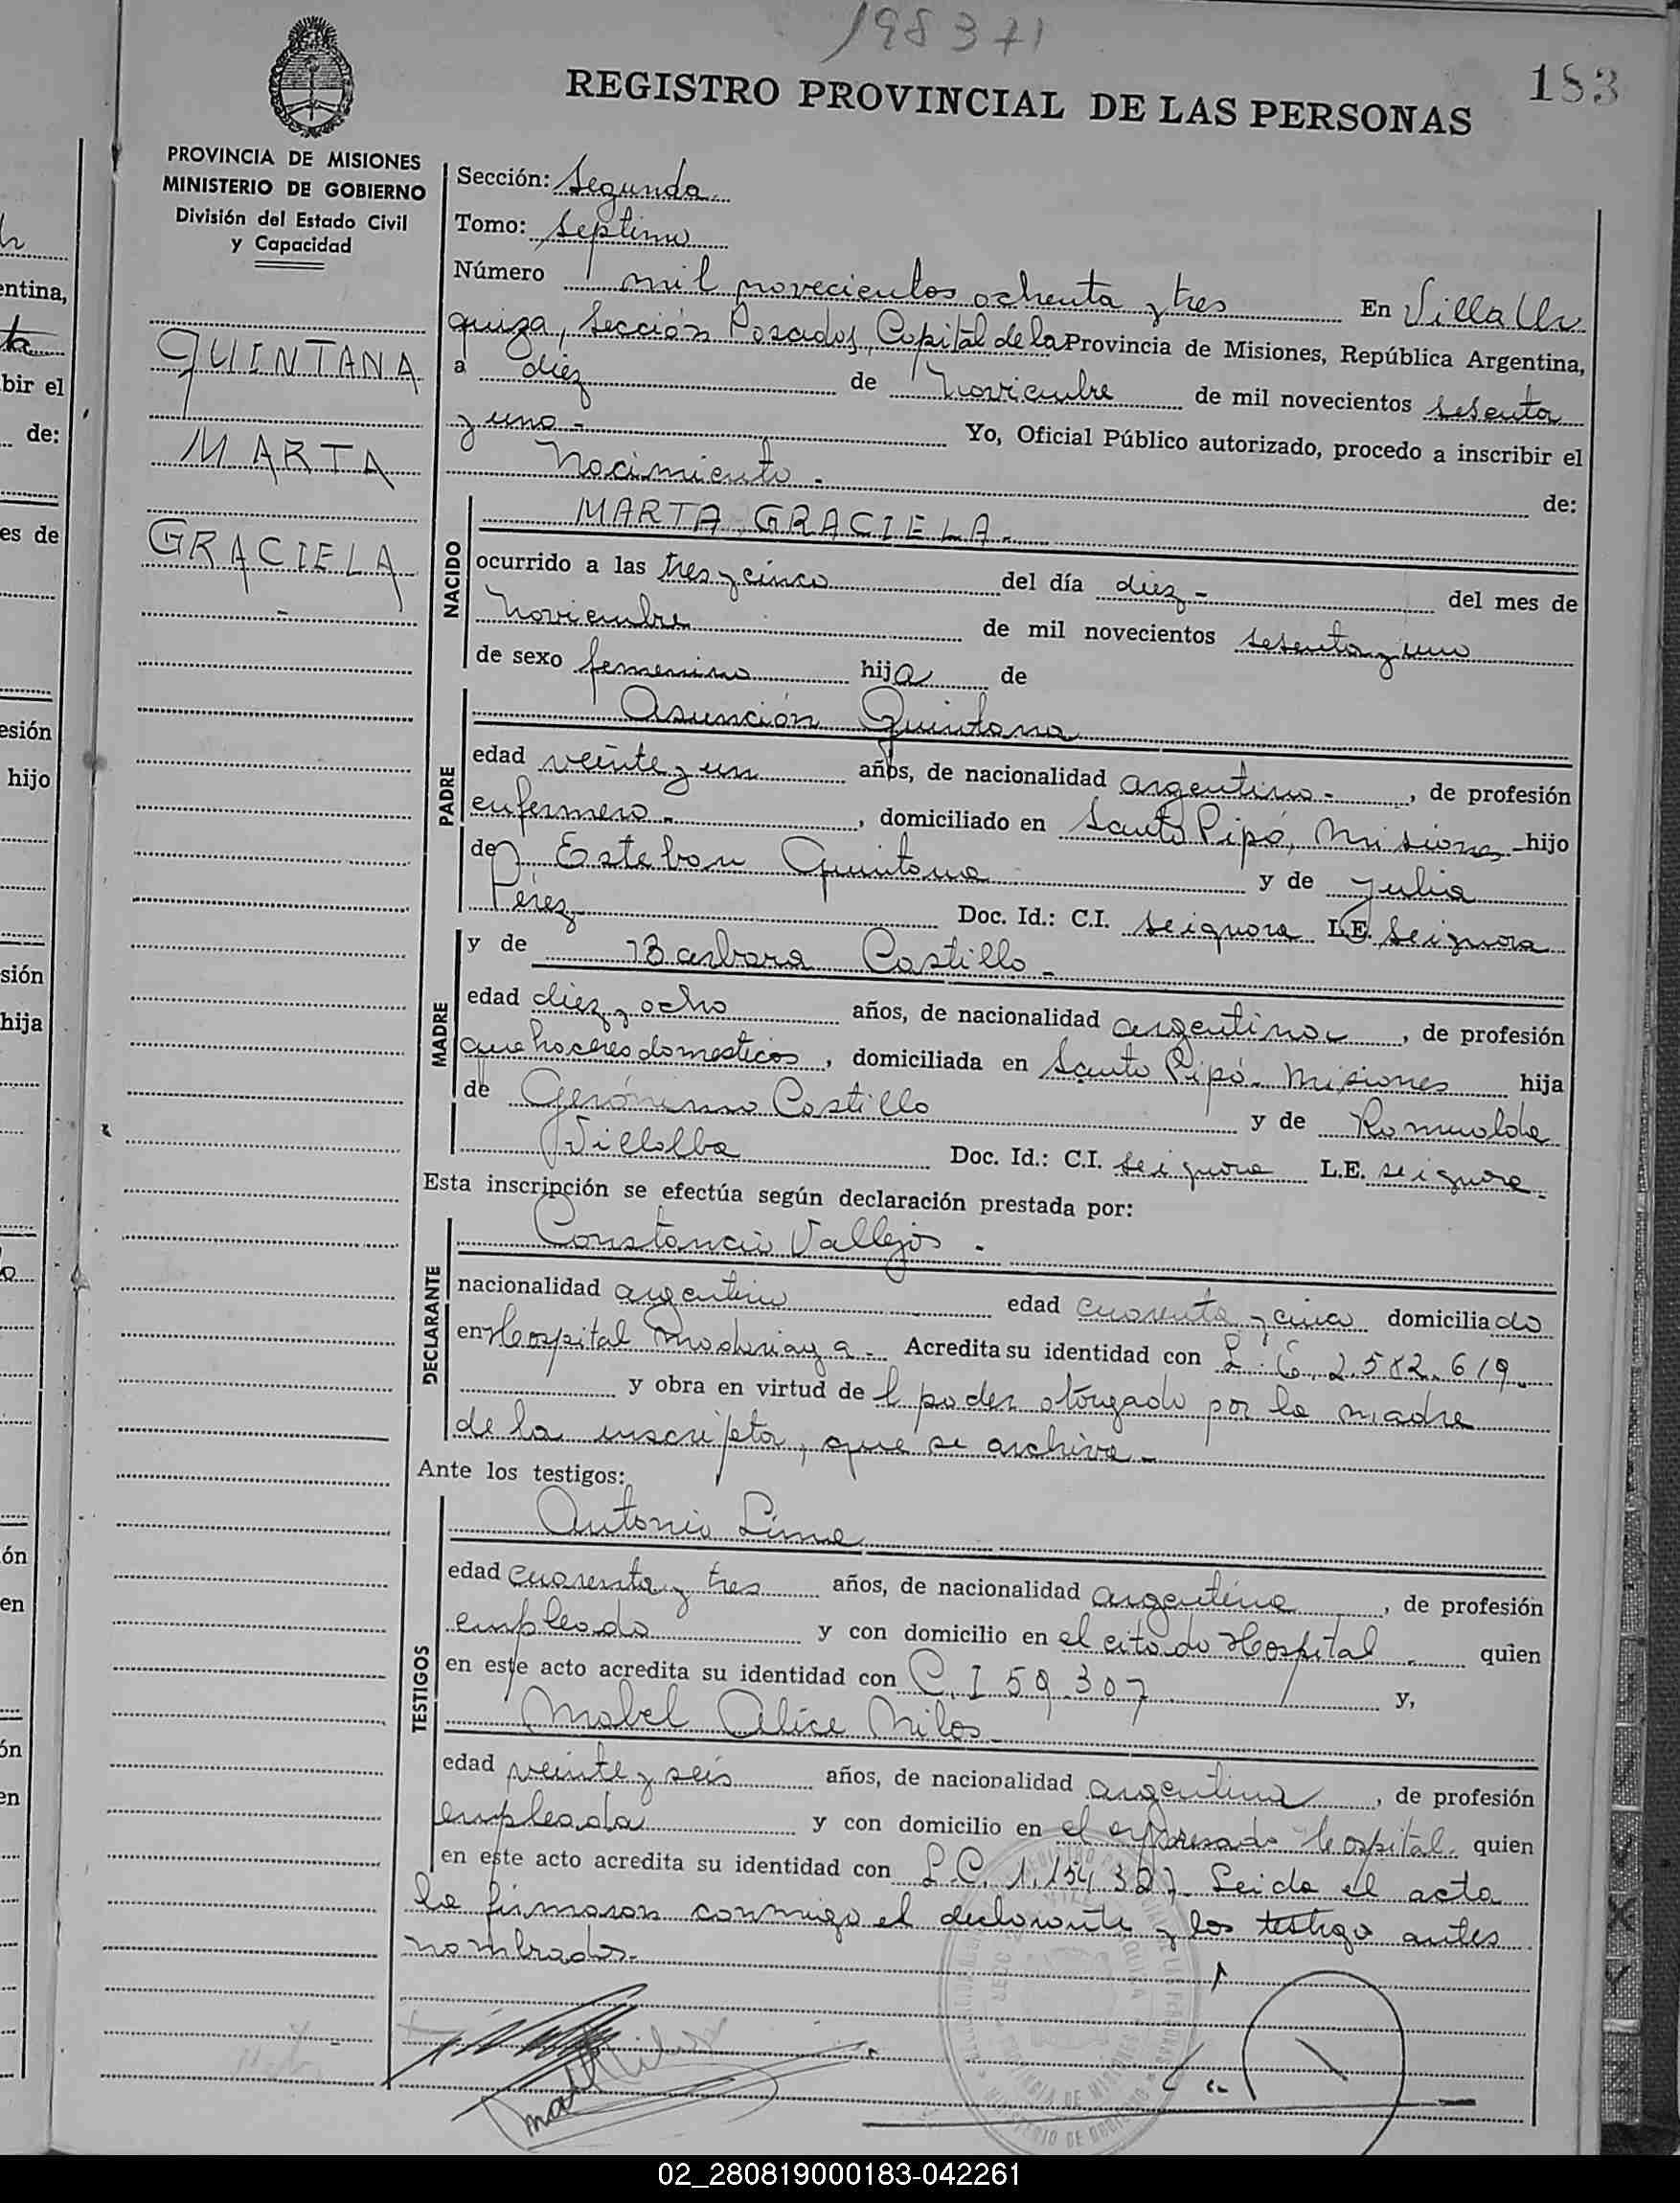 198371
183
REGISTRO PROVINCIAL DE LAS PERSONAS
PROVINCIA DE MISIONES
MINISTERIO DE GOBIERNO
División del Estado Civil
y Capacidad
QUINTANA
MARTA
GRACIELA
Sección: Segunda
Tomo: Septimo
Número mil novecientos ochenta y tres En Villa Ur
quiza, Sección Posadas, Capital de la Provincia de Misiones, República Argentina,
a diez de Noviembre de mil novecientos setenta
y uno - Yo, Oficial Público autorizado, procedo a inscribir el
Nacimiento - de:
NACIDO
MARTA GRACIELA.
ocurrido a las tres y cinco del día diez - del mes de
Noviembre de mil novecientos setenta y uno
de sexo femenino hija de
PADRE
Asunción Quintana
edad veinte y un años, de nacionalidad argentino -, de profesión
enfermero -, domiciliado en Santo Pipó, Misiones hijo
de Esteban Quintana y de Julia
Pérez Doc. Id.: C.I. se ignora L.E. se ignora
MADRE
y de Barbara Castillo -
edad diez y ocho años, de nacionalidad argentina, de profesión
quehaceres domesticos, domiciliada en Santo Pipó - Misiones hija
de Gerónimo Castillo y de Romualda
Villalba Doc. Id.: C.I. se ignora L.E. se ignora -
Esta inscripción se efectúa según declaración prestada por:
DECLARANTE
Constancio Vallejos -
nacionalidad argentino edad cuarenta y cinco domiciliado
en Hospital Madariaga - Acredita su identidad con L.E. 2.582.619
y obra en virtud de l poder otorgado por la madre
de la inscripta, que se archiva -
Ante los testigos:
TESTIGOS
Antonio Lima
edad cuarenta y tres años, de nacionalidad argentina, de profesión
empleado y con domicilio en el citado Hospital - quien
en este acto acredita su identidad con C.I 59.307 y,
Mabel Alice Milos
edad veinte y seis años, de nacionalidad argentina, de profesión
empleada y con domicilio en el expresado Hospital. quien
en este acto acredita su identidad con L.C. 1.154.327. Leida el acta
la firmaron conmigo el declarante y los testigo antes
nombrados.
02_280819000183-042261